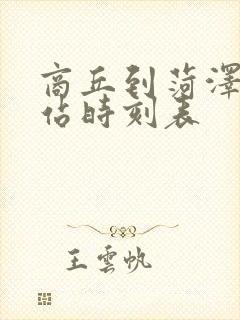 商丘到菏澤
佔時刻表
王雲帆